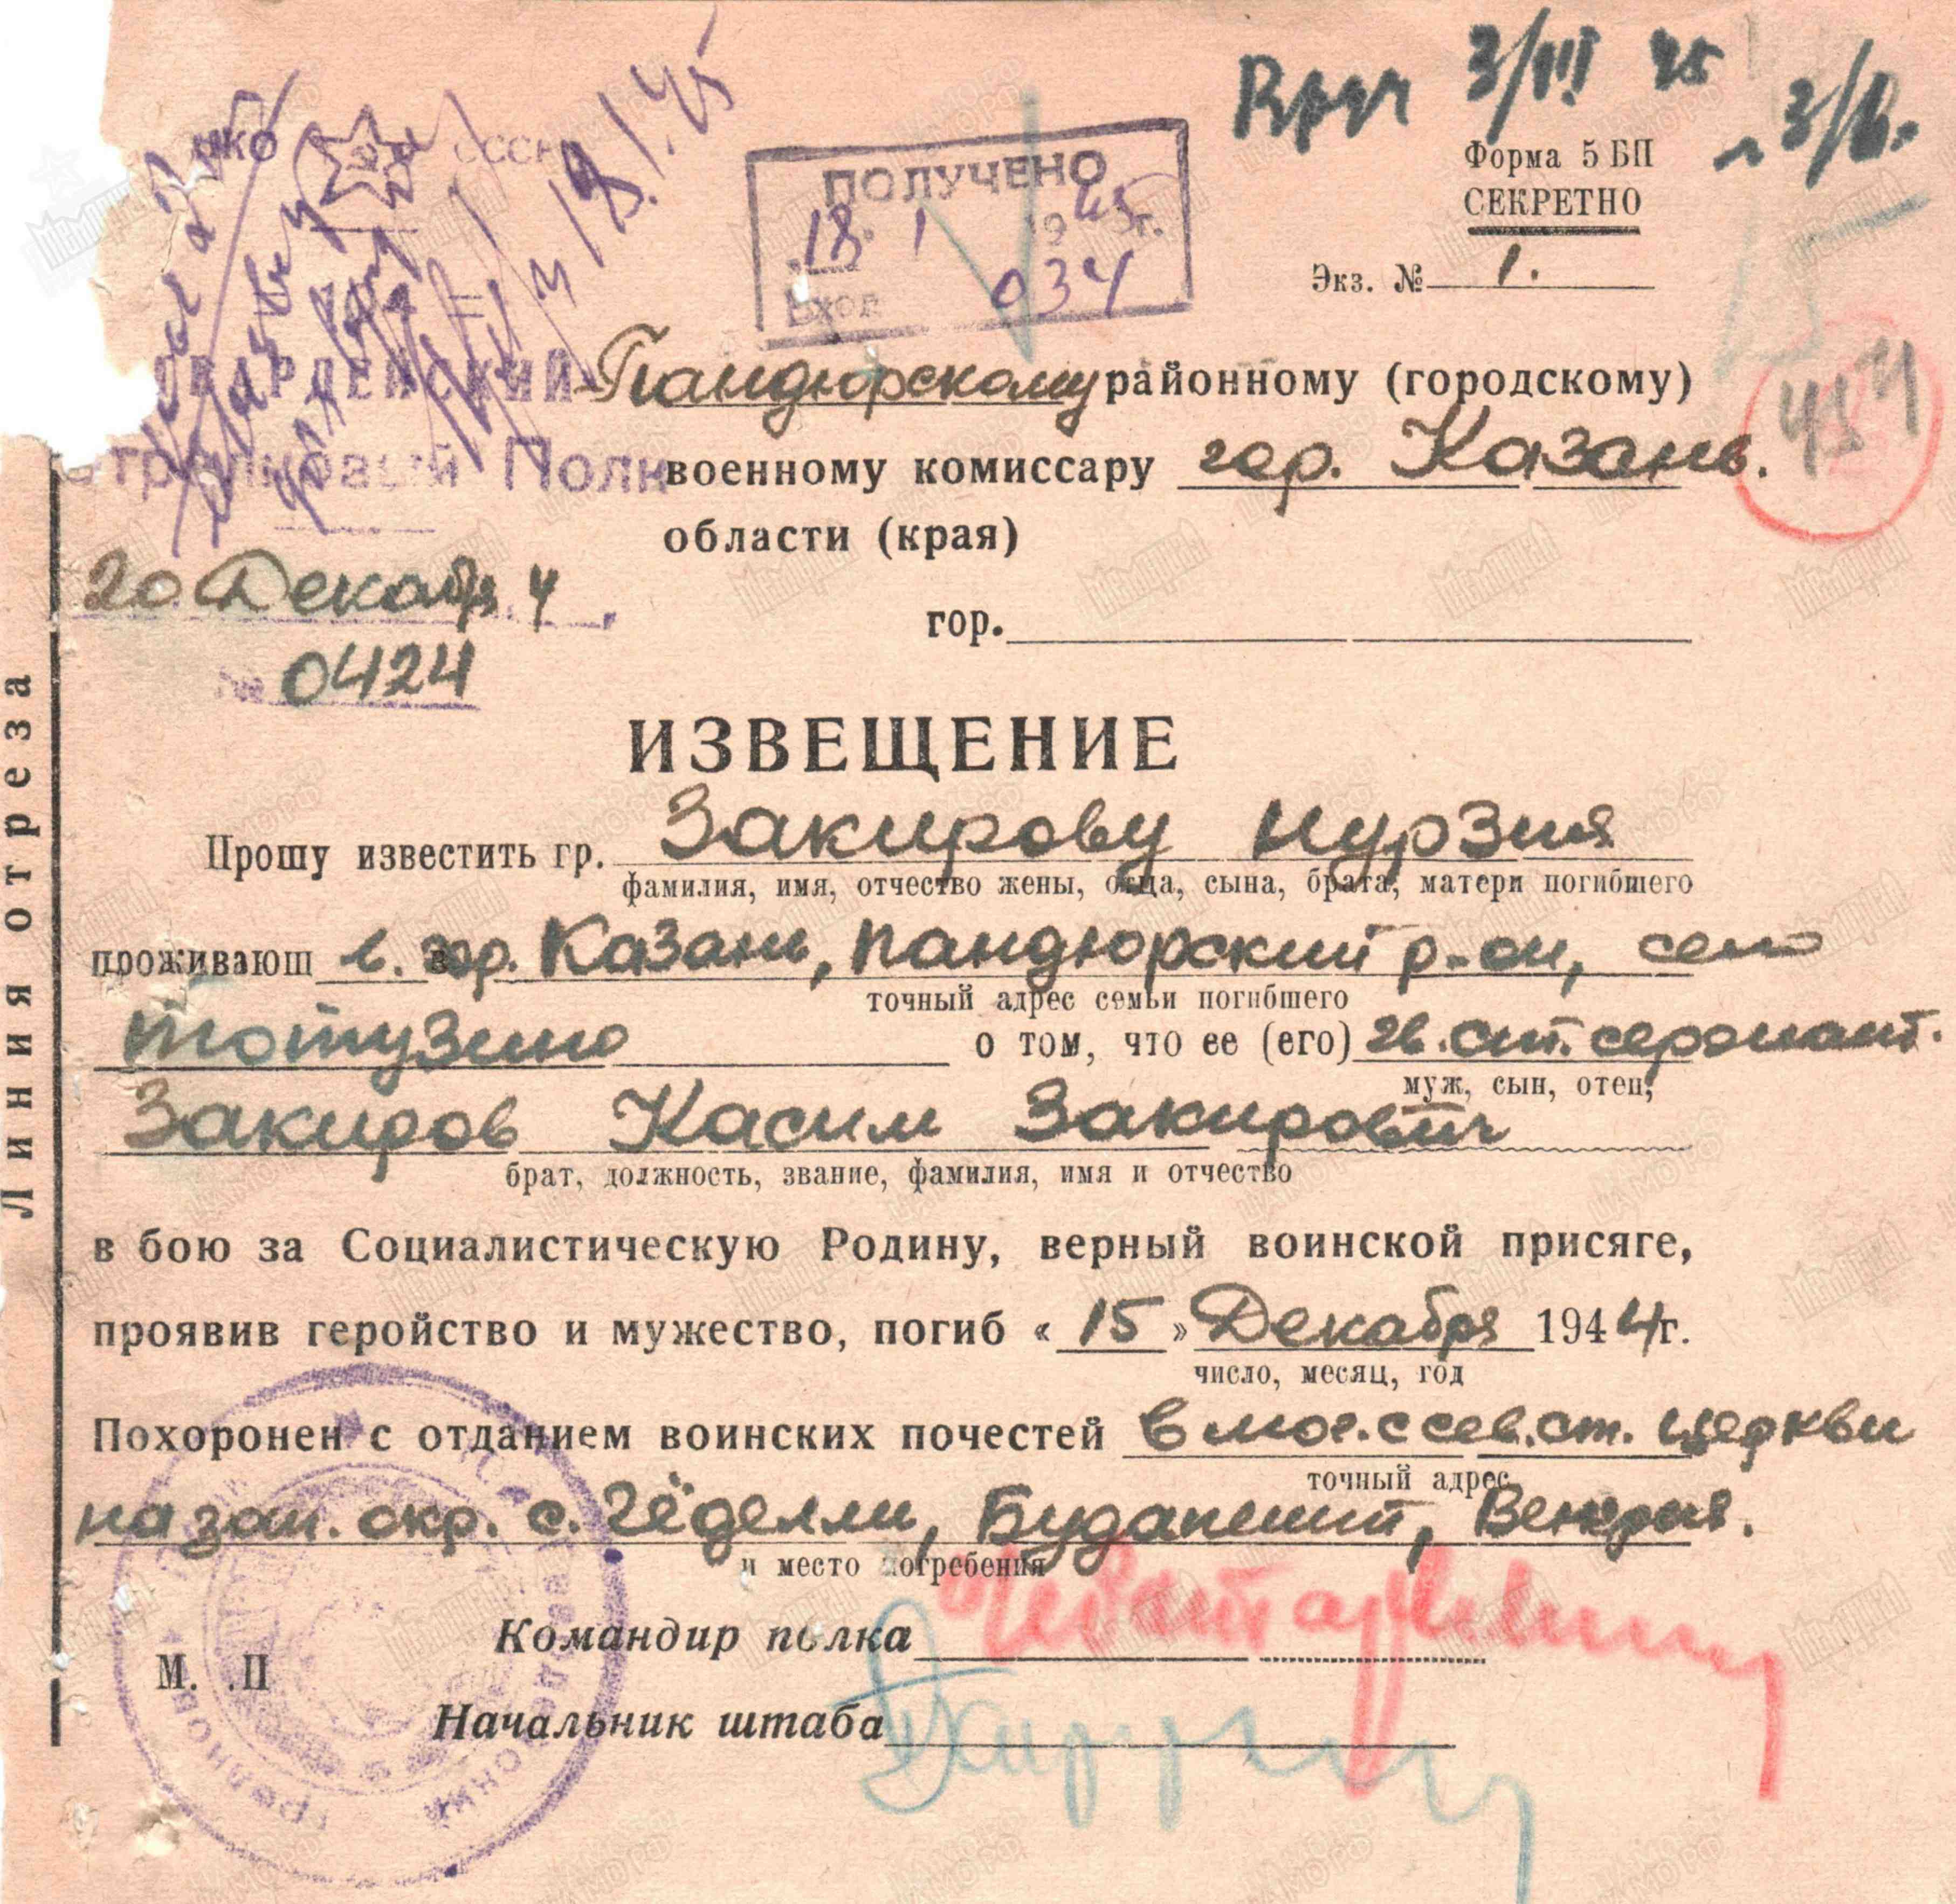 3/III 45
НКО СССР
Форма 5 БП
СЕКРЕТНО
Экз. № 1.
ПОЛУЧЕНО
18. 1 1945г.
Вход 034
18/1 45
Пандюрскому районному (городскому)
военному комиссару гор. Казань.
области (края)
гор.
Полк
20 Декабря 4
№ 0424
Линия отреза
ИЗВЕЩЕНИЕ
Прошу известить гр. Закирову Нурзия
фамилия, имя, отчество жены, отца, сына, брата, матери погибшего
проживающ в. гор. Казань, Пандюрский р-он, село
точный адрес семьи погибшего
Тотузино о том, что ее (его) гв. ст. сержант.
муж, сын, отец,
Закиров Касим Закирович
брат, должность, звание, фамилия, имя и отчество
в бою за Социалистическую Родину, верный воинской присяге,
проявив геройство и мужество, погиб « 15 » Декабря 1944г.
число, месяц, год
Похоронен с отданием воинских почестей в мог. с сев. ст. церкви
точный адрес
на зап. окр. с. Гёделли, Будапешт, Венгрия.
и место погребения
Командир полка
М. П
Начальник штаба